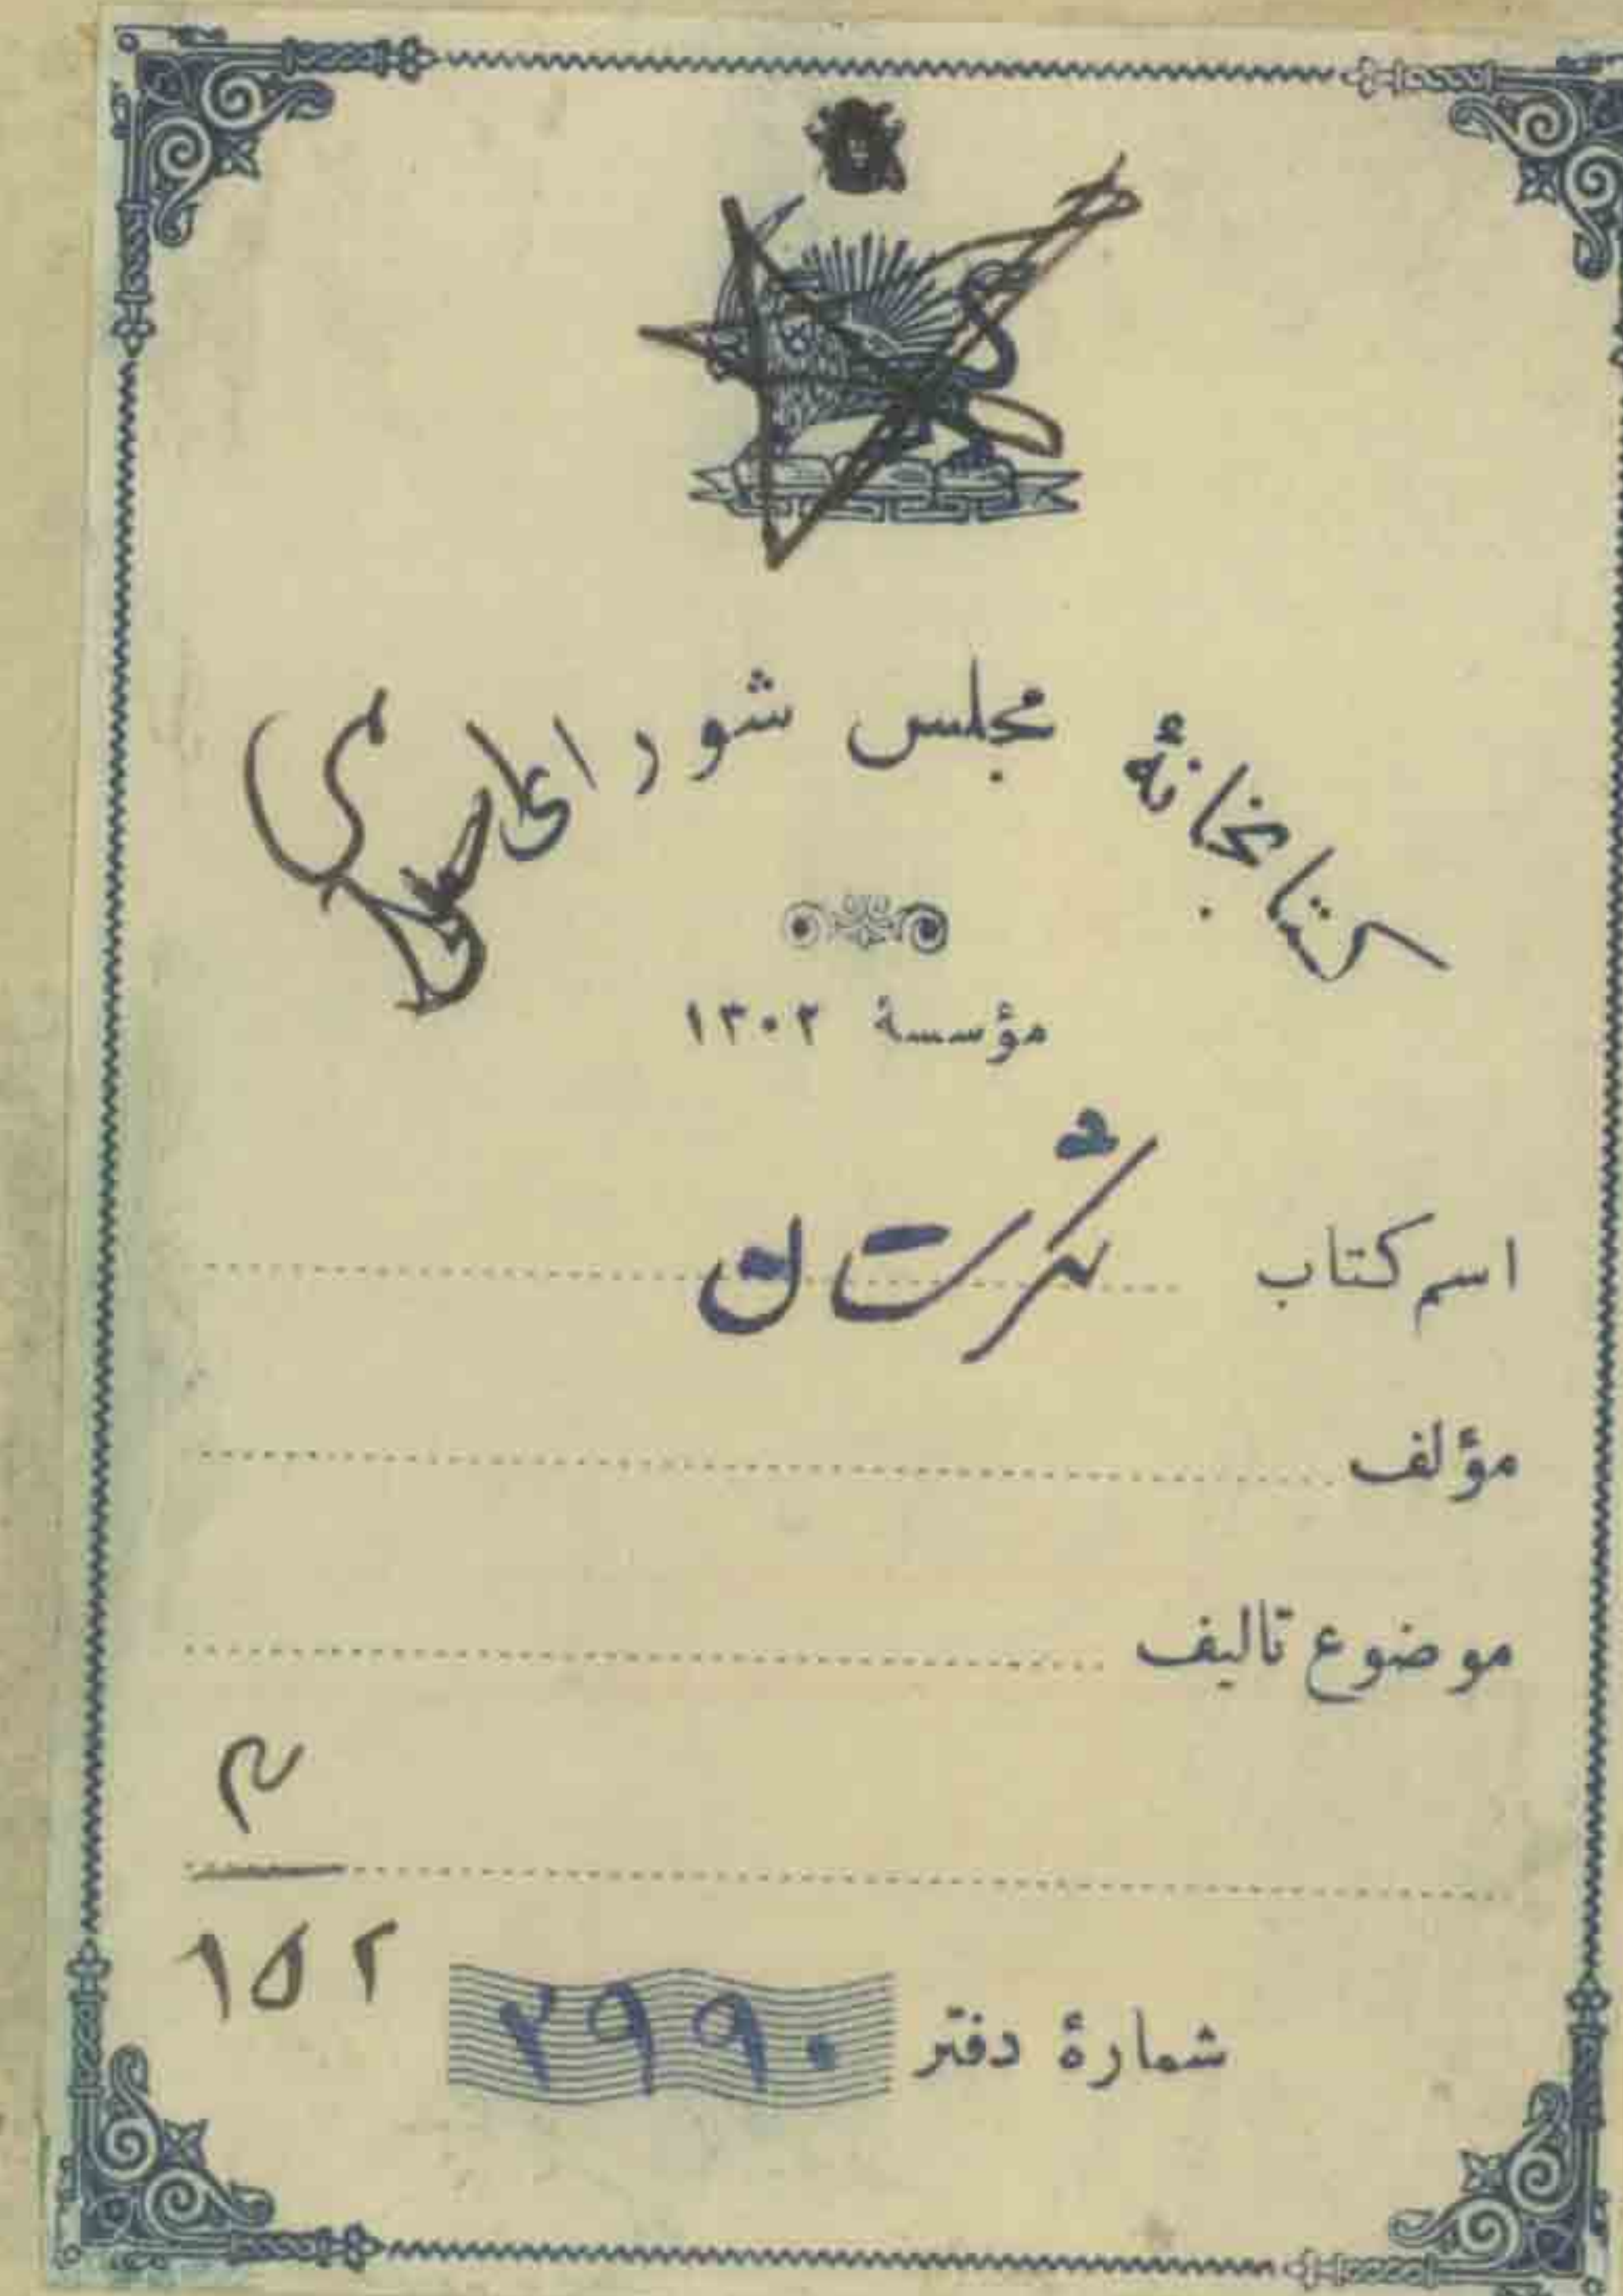 کتابخانهٔ مجلس شورای اسلامی
مؤسسهٔ ۱۳۰۲
اسم کتاب
مؤلف
موضوع تالیف
۱۵۲
شمارهٔ دفتر ۲۹۹۰